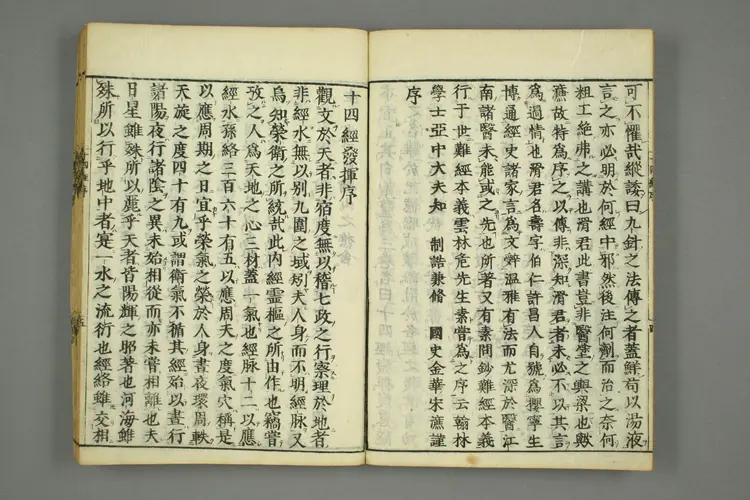 可不懼哉縱諉曰九針之法傳之者蓋鮮苟以湯液
言之亦必明於何經中邪然後注何劑而治之奈何
粗工絶弗之講也滑君此書豈非醫塗之輿梁也歟
濂故特為序之以傳非深知滑君者未必不以其言
為過情也滑君名壽字伯仁許昌人自號為攖寧生
博通經史諸家言為文辭溫雅有法而尤深於醫江
南諸醫未能或之先也所著又有素問鈔難經本義
行于世難經本義雲林危先生素嘗為之序云翰林
學士亞中大夫知 制誥兼脩 國史金華宋濂謹
序
十四經發揮序
觀文於天者非宿度無以稽七政之行察理於地者
非經水無以別九圍之域矧夫人身而不明經脉又
烏知榮衛之所統哉此内經靈樞之所由作也竊嘗
攷之人為天地之心三材蓋一氣也經脉十二以應
經水孫絡三百六十有五以應周天之度氣穴稱是
以應周期之日宜乎榮氣之榮於人身晝夜環周軼
天旋之度四十有九或謂衛氣不循其經殆以晝行
諸陽夜行諸陰之異未始相從而亦未嘗相離也夫
日星雖殊所以麗乎天者皆陽輝之昭著也河海雖
殊所以行乎地中者寔一水之流衍也經絡雖交相